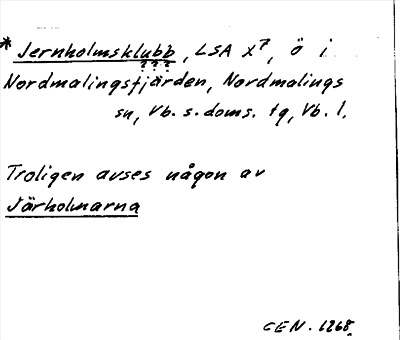 * Jernholmsklubb, LSA X7, ö i
???
Nordmalingsfjärden, Nordmalings
sn, Vb. s. doms. tg, Vb. l.
Troligen avses någon av
Järholmarna
CEN. 1268.